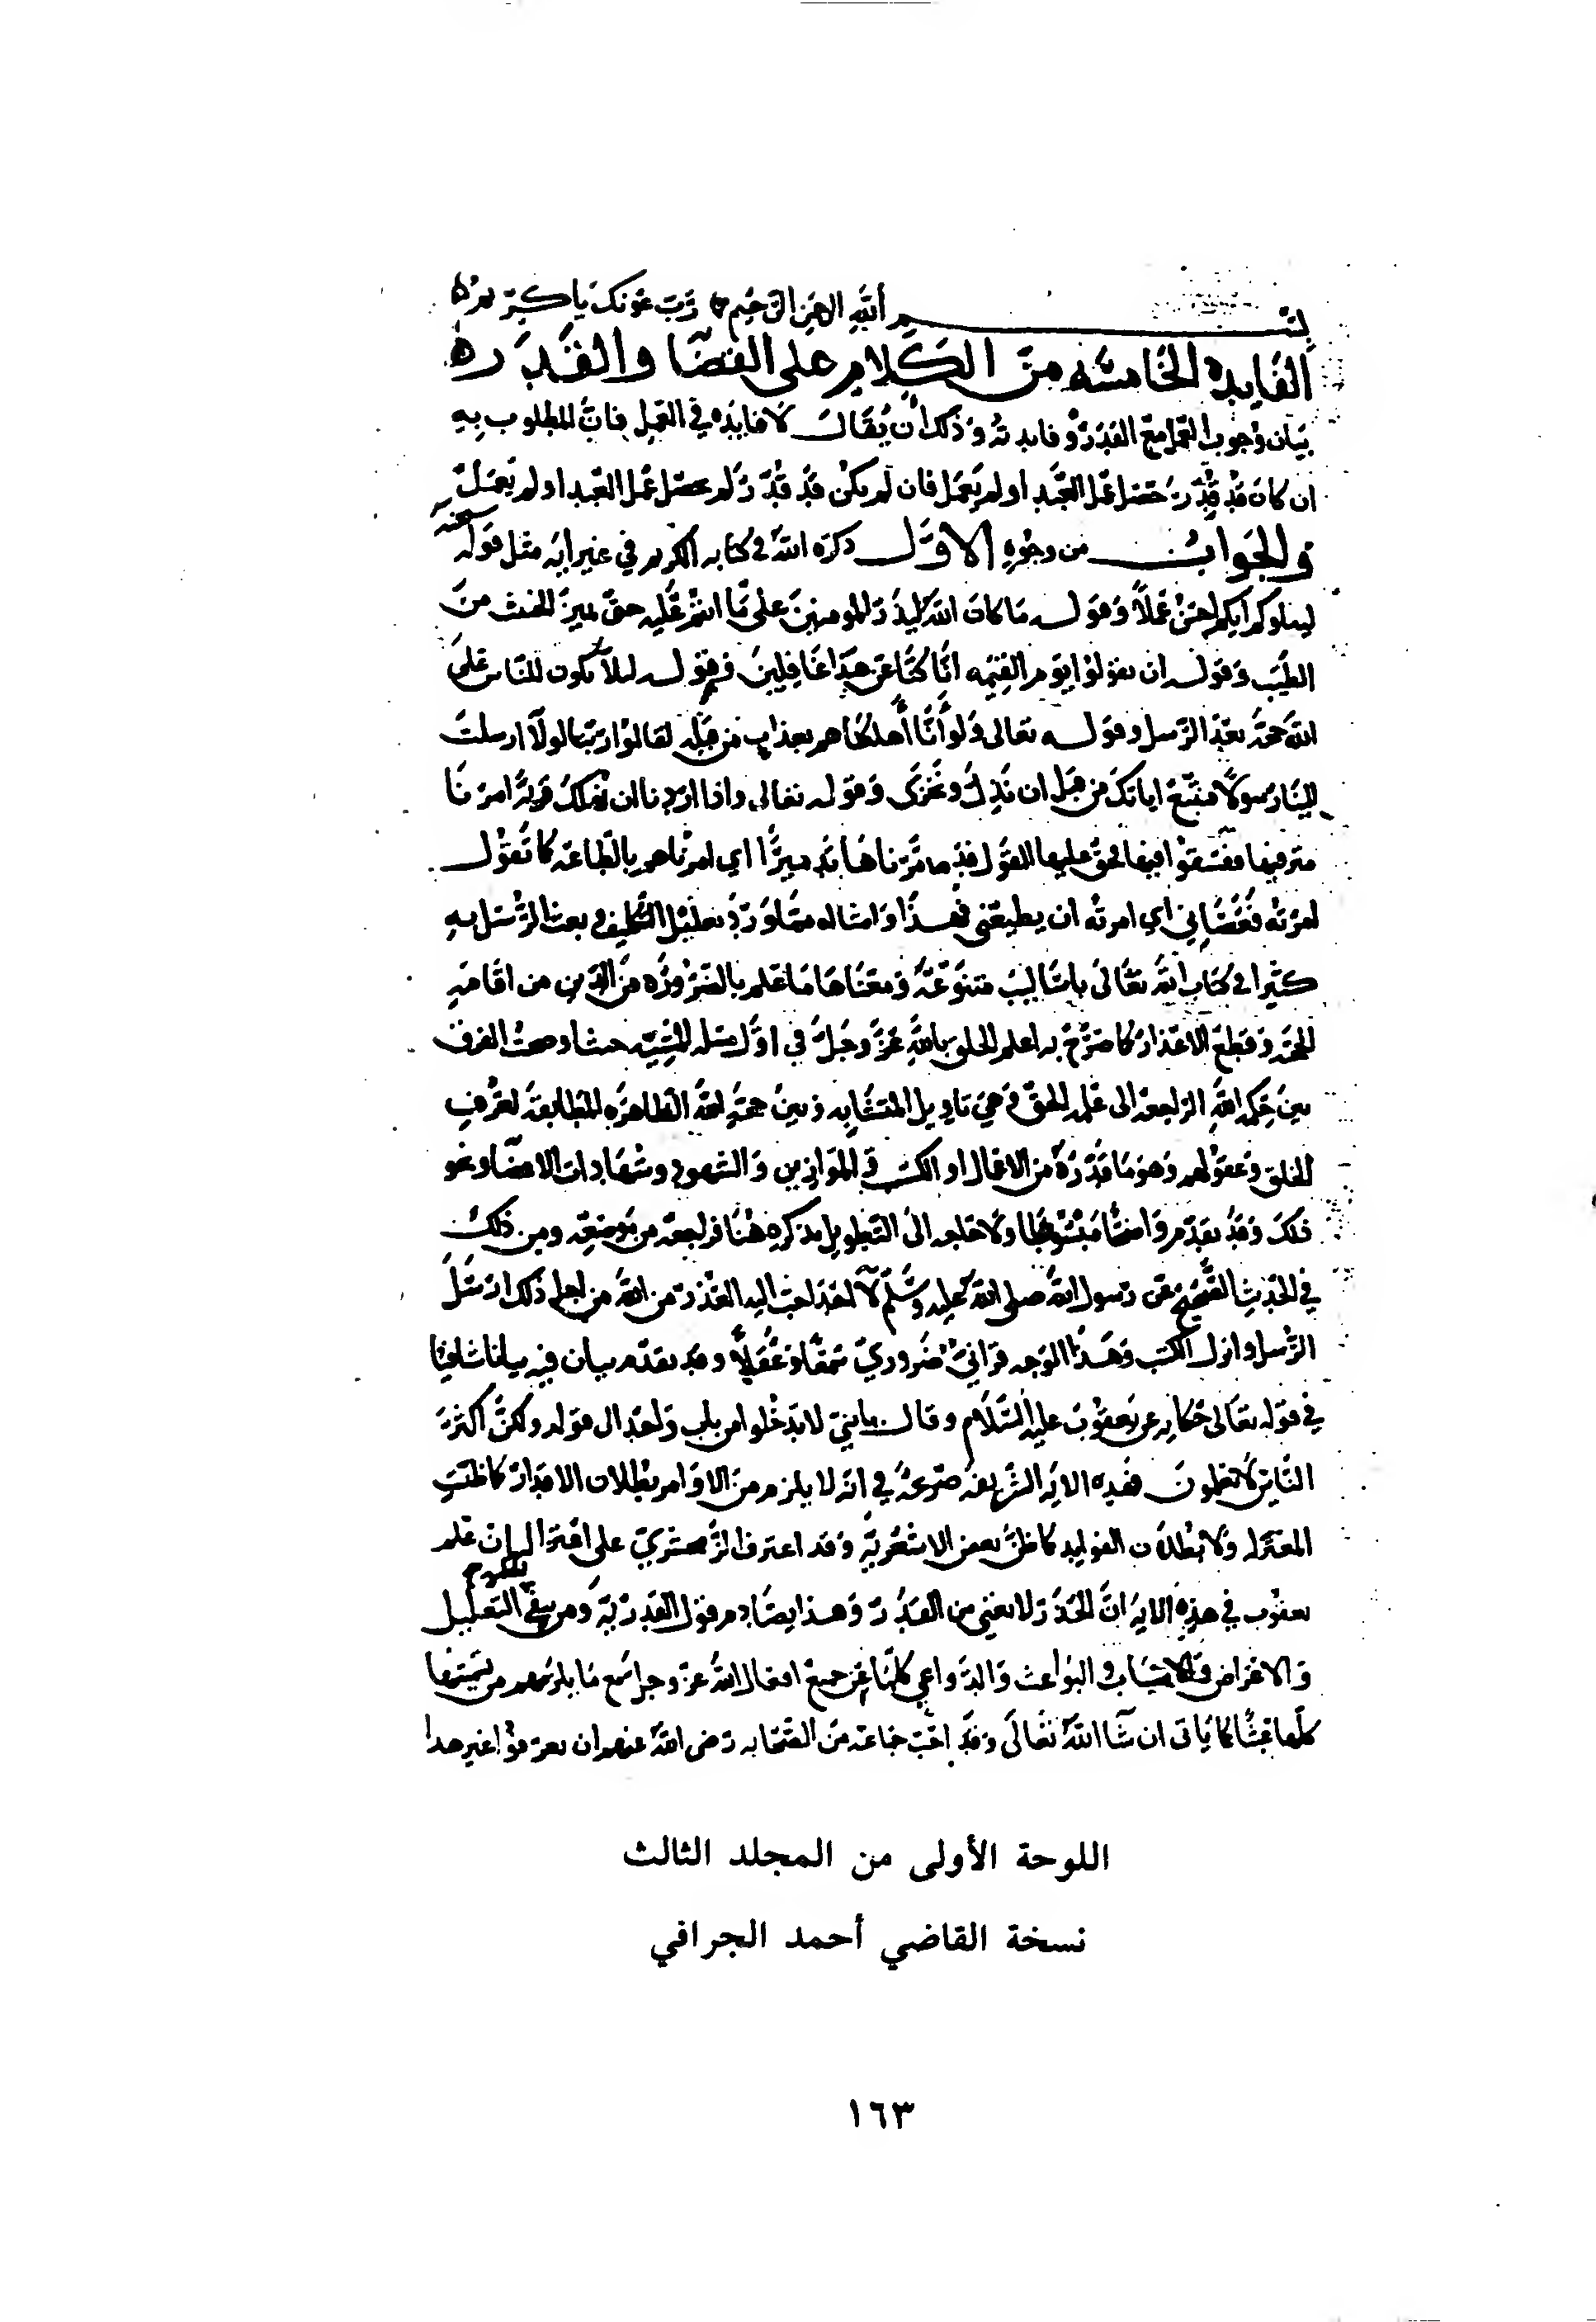 بسم الله الرحمن الرحيم رب عونك يا كريم
الفايده الخامسه من الكلام على القضا والقدر
بيان وجوب العمل مع القدر وفايدته وذلك أن يقال لا فايده في العمل فان المطلوب به
ان كان قد قدر حصل عمل العبد او لم يعمل فان لم يكن قد قدر لم يحصل عمل العبد او لم يعمل
والجواب من وجوه الاول ذكره الله في كتابه الكريم في غير ايه مثل قوله
ليبلوكم ايكم احسن عملا وقوله ما كان الله ليذر المومنين على ما انتم عليه حتى يميز الخبيث من
الطيب وقوله ان تقولوا يوم القيمه انا كنا عن هذا غافلين وقوله ليلا يكون للناس على
الله حجة بعد الرسل وقوله تعالى ولو أنا أهلكناهم بعذاب من قبله لقالوا ربنا لولا ارسلت
الينا رسولا فنتبع اياتك من قبل ان نذل ونخزى وقوله تعالى واذا اردنا ان نهلك قرية امرنا
مترفيها ففسقوا فيها فحق عليها القول فدمرناها تدميرا اي امرناهم بالطاعه كما تقول
امرته فعصاني اي امرته ان يطيعني فهذا وامثاله مما ورد تعليل التكليف وبعث الرسل به
كثيرا في كتاب الله تعالى باساليب متنوعة ومعناها ما علم بالضروره من الدين من اقامه
الحجه وقطع الاعذار كما صرح به اعلم الخلق بالله عز وجل في اول مسله المشيه حيث اوضحت الفرق
بين حكمه الله الراجعه الى علمه الحق وهي تاويل المتشابه وبين حجة الله الظاهره المطابقة لعرف
الخلق وعقولهم وهو ما قدره من الاعمال او الكتب في الموازين والشهود وشهادات الاعضا ونحو
ذلك وقد تقدم واضحا مبسوطا ولا حاجه الى التطويل بذكره هنا فراجعه من موضعه ومن ذلك
في الحديث الصحيح عن رسول الله صلى الله عليه وسلم لا احد احب اليه العذر من الله من اجل ذلك ارسل
الرسل وانزل الكتب وهذا الوجه قراني ضروري سمعا وعقلا وقد تقدم بيان فيه بيانا شافيا
في قوله تعالى حكايه عن يعقوب عليه السلام وقال يا بني لا تدخلوا من باب واحد الى قوله ولكن اكثر
الناس لا يعلمون فهذه الايه الشريفه صريحة في انه لا يلزم من الاوامر بطلان الاقدار كما ظنت
المعتزله ولا بطلان الفوايد كما ظن بعض الاشعرية وقد اعترف الزمخشري على اعتزاله ان علم
يعقوب في هذه الايه ان الحذر لا يغني من القدر وهذا يصادم قول القدرية ومن ينفي التعليل
والاغراض والاسباب والبواعث والدواعي كلها عن جميع افعال الله عز وجل مع ما يلزمهم من تسميتها
كلها عبثا كما ياتي ان شا الله تعالى وقد احب جماعة من الصحابه رضي الله عنهم ان يعرفوا غير هذا
اللوحة الأولى من المجلد الثالث
نسخة القاضي أحمد الجرافي
١٦٣